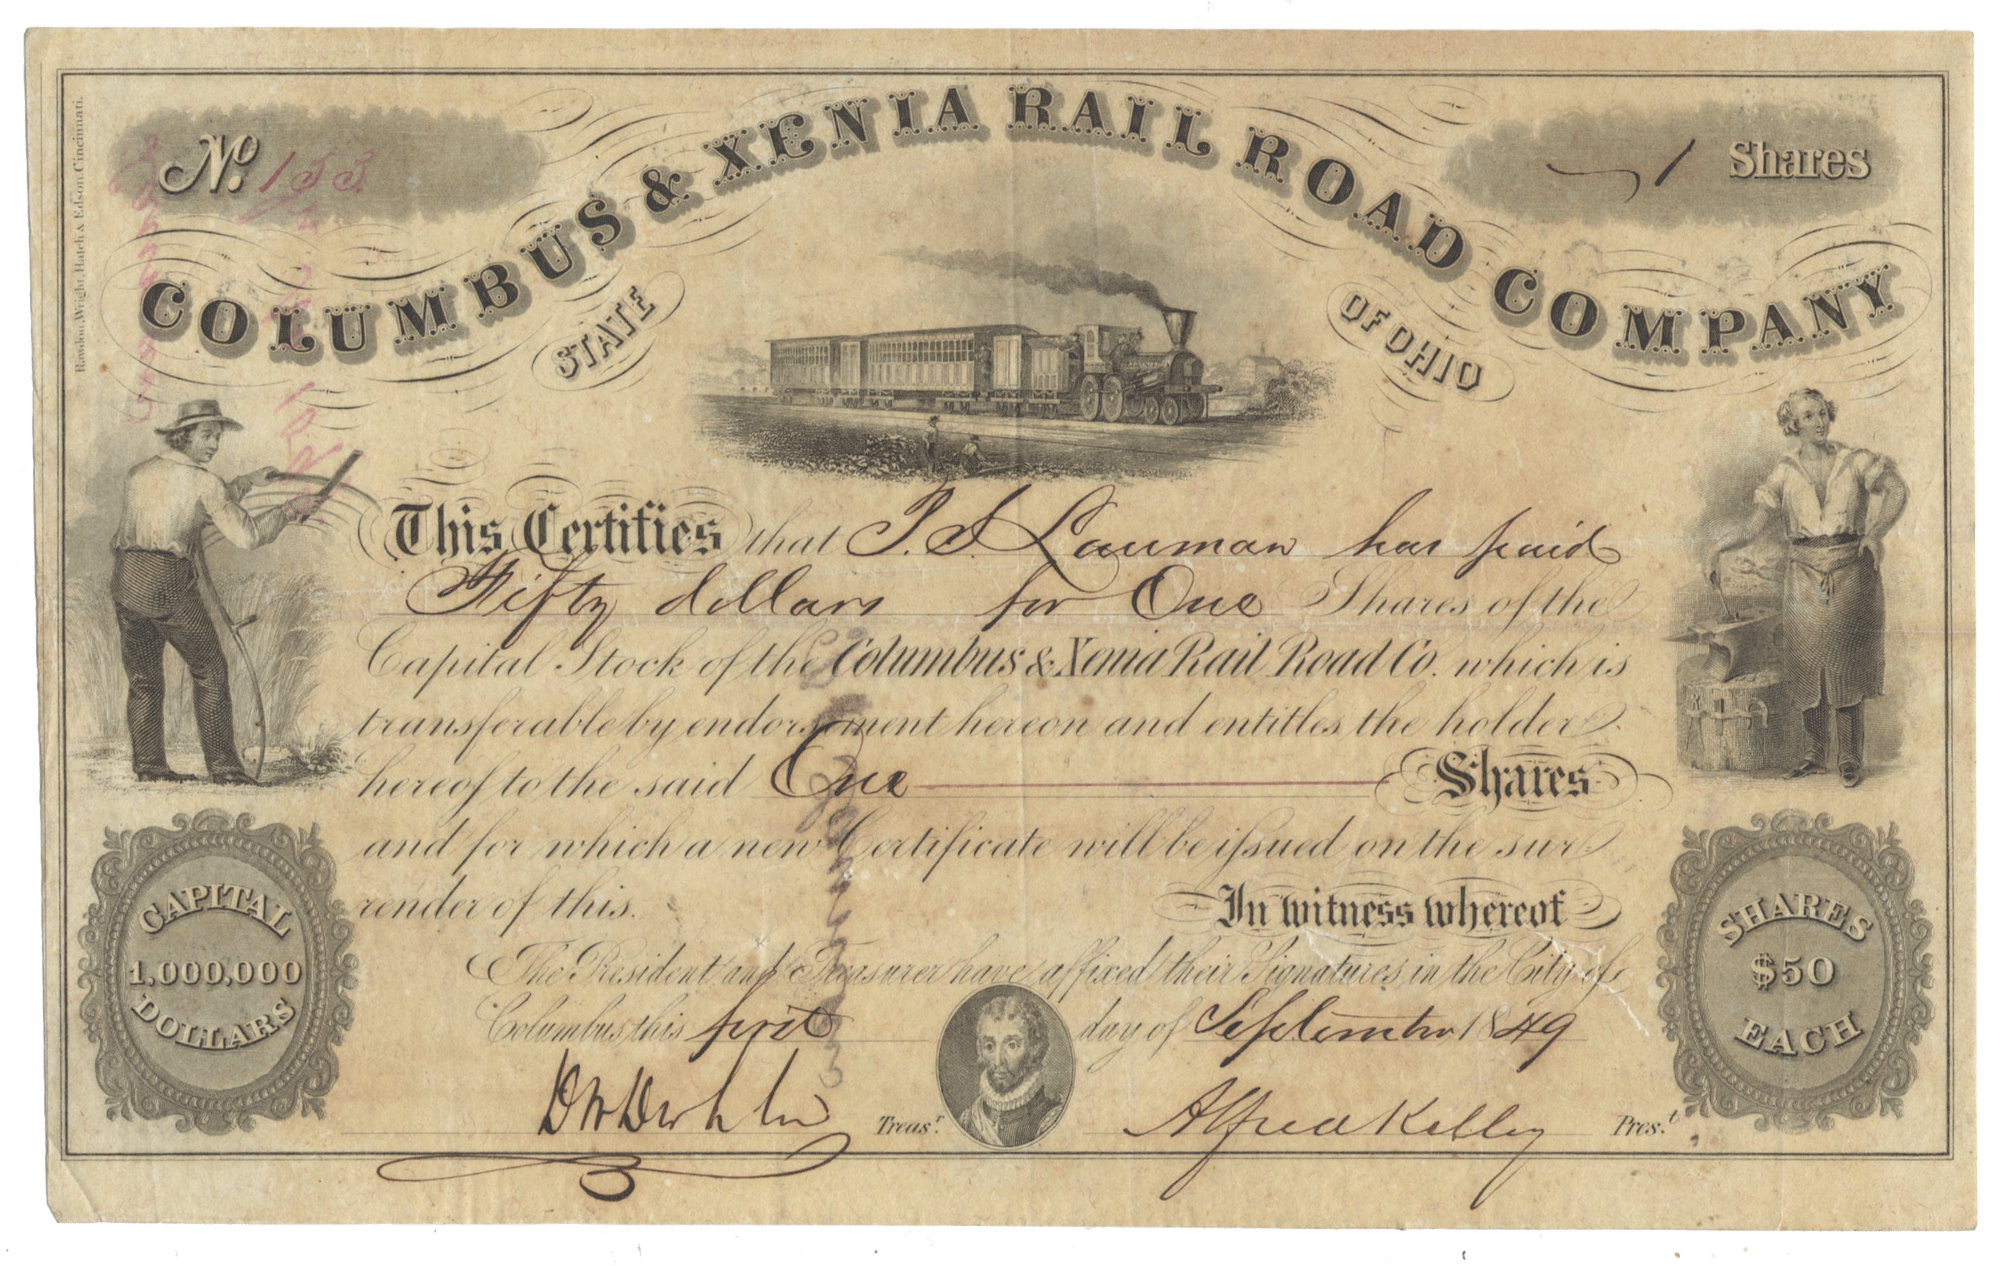 Rawdon, Wright, Hatch & Edson, Cincinnati.
No. 153
1 Shares
COLUMBUS & XENIA RAIL ROAD COMPANY
STATE OF OHIO
This Certifies that T. S. Lauman has paid
Fifty dollars for One Shares of the
Capital Stock of the Columbus & Xenia Rail Road Co. which is
transferable by endorsement hereon and entitles the holder
hereof to the said One Shares
and for which a new Certificate will be issued on the sur
render of this.
In witness whereof
The President and Treasurer have affixed their Signatures in the City of
Columbus this first day of September 1849
Treasr.
Alfred Kelley Prest.
CAPITAL
1,000,000
DOLLARS
SHARES
$50
EACH